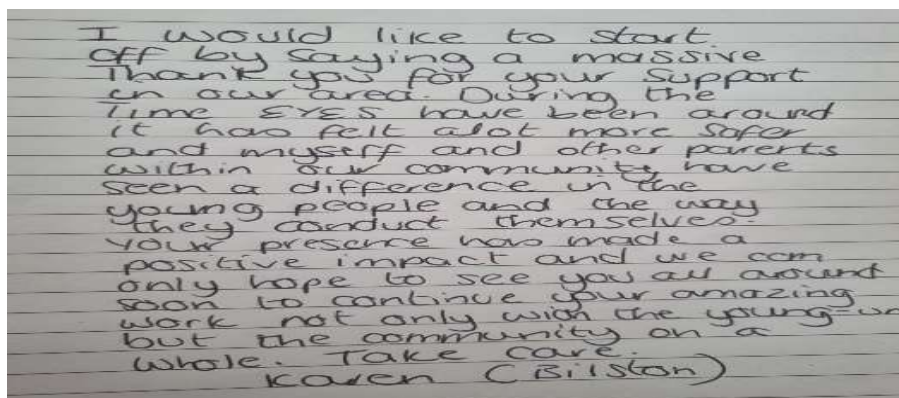 I would like to start
off by saying a massive
Thank you for your support
in our area. During the
Time EYES have been around
it has felt alot more safer
and myself and other parents
within our community have
seen a difference in the
young people and the way
they conduct themselves.
Your presence has made a
positive impact and we can
only hope to see you all around
soon to continue your amazing
work not only with the young-un
but the community on a
whole. Take care.
Karen (Bilston)